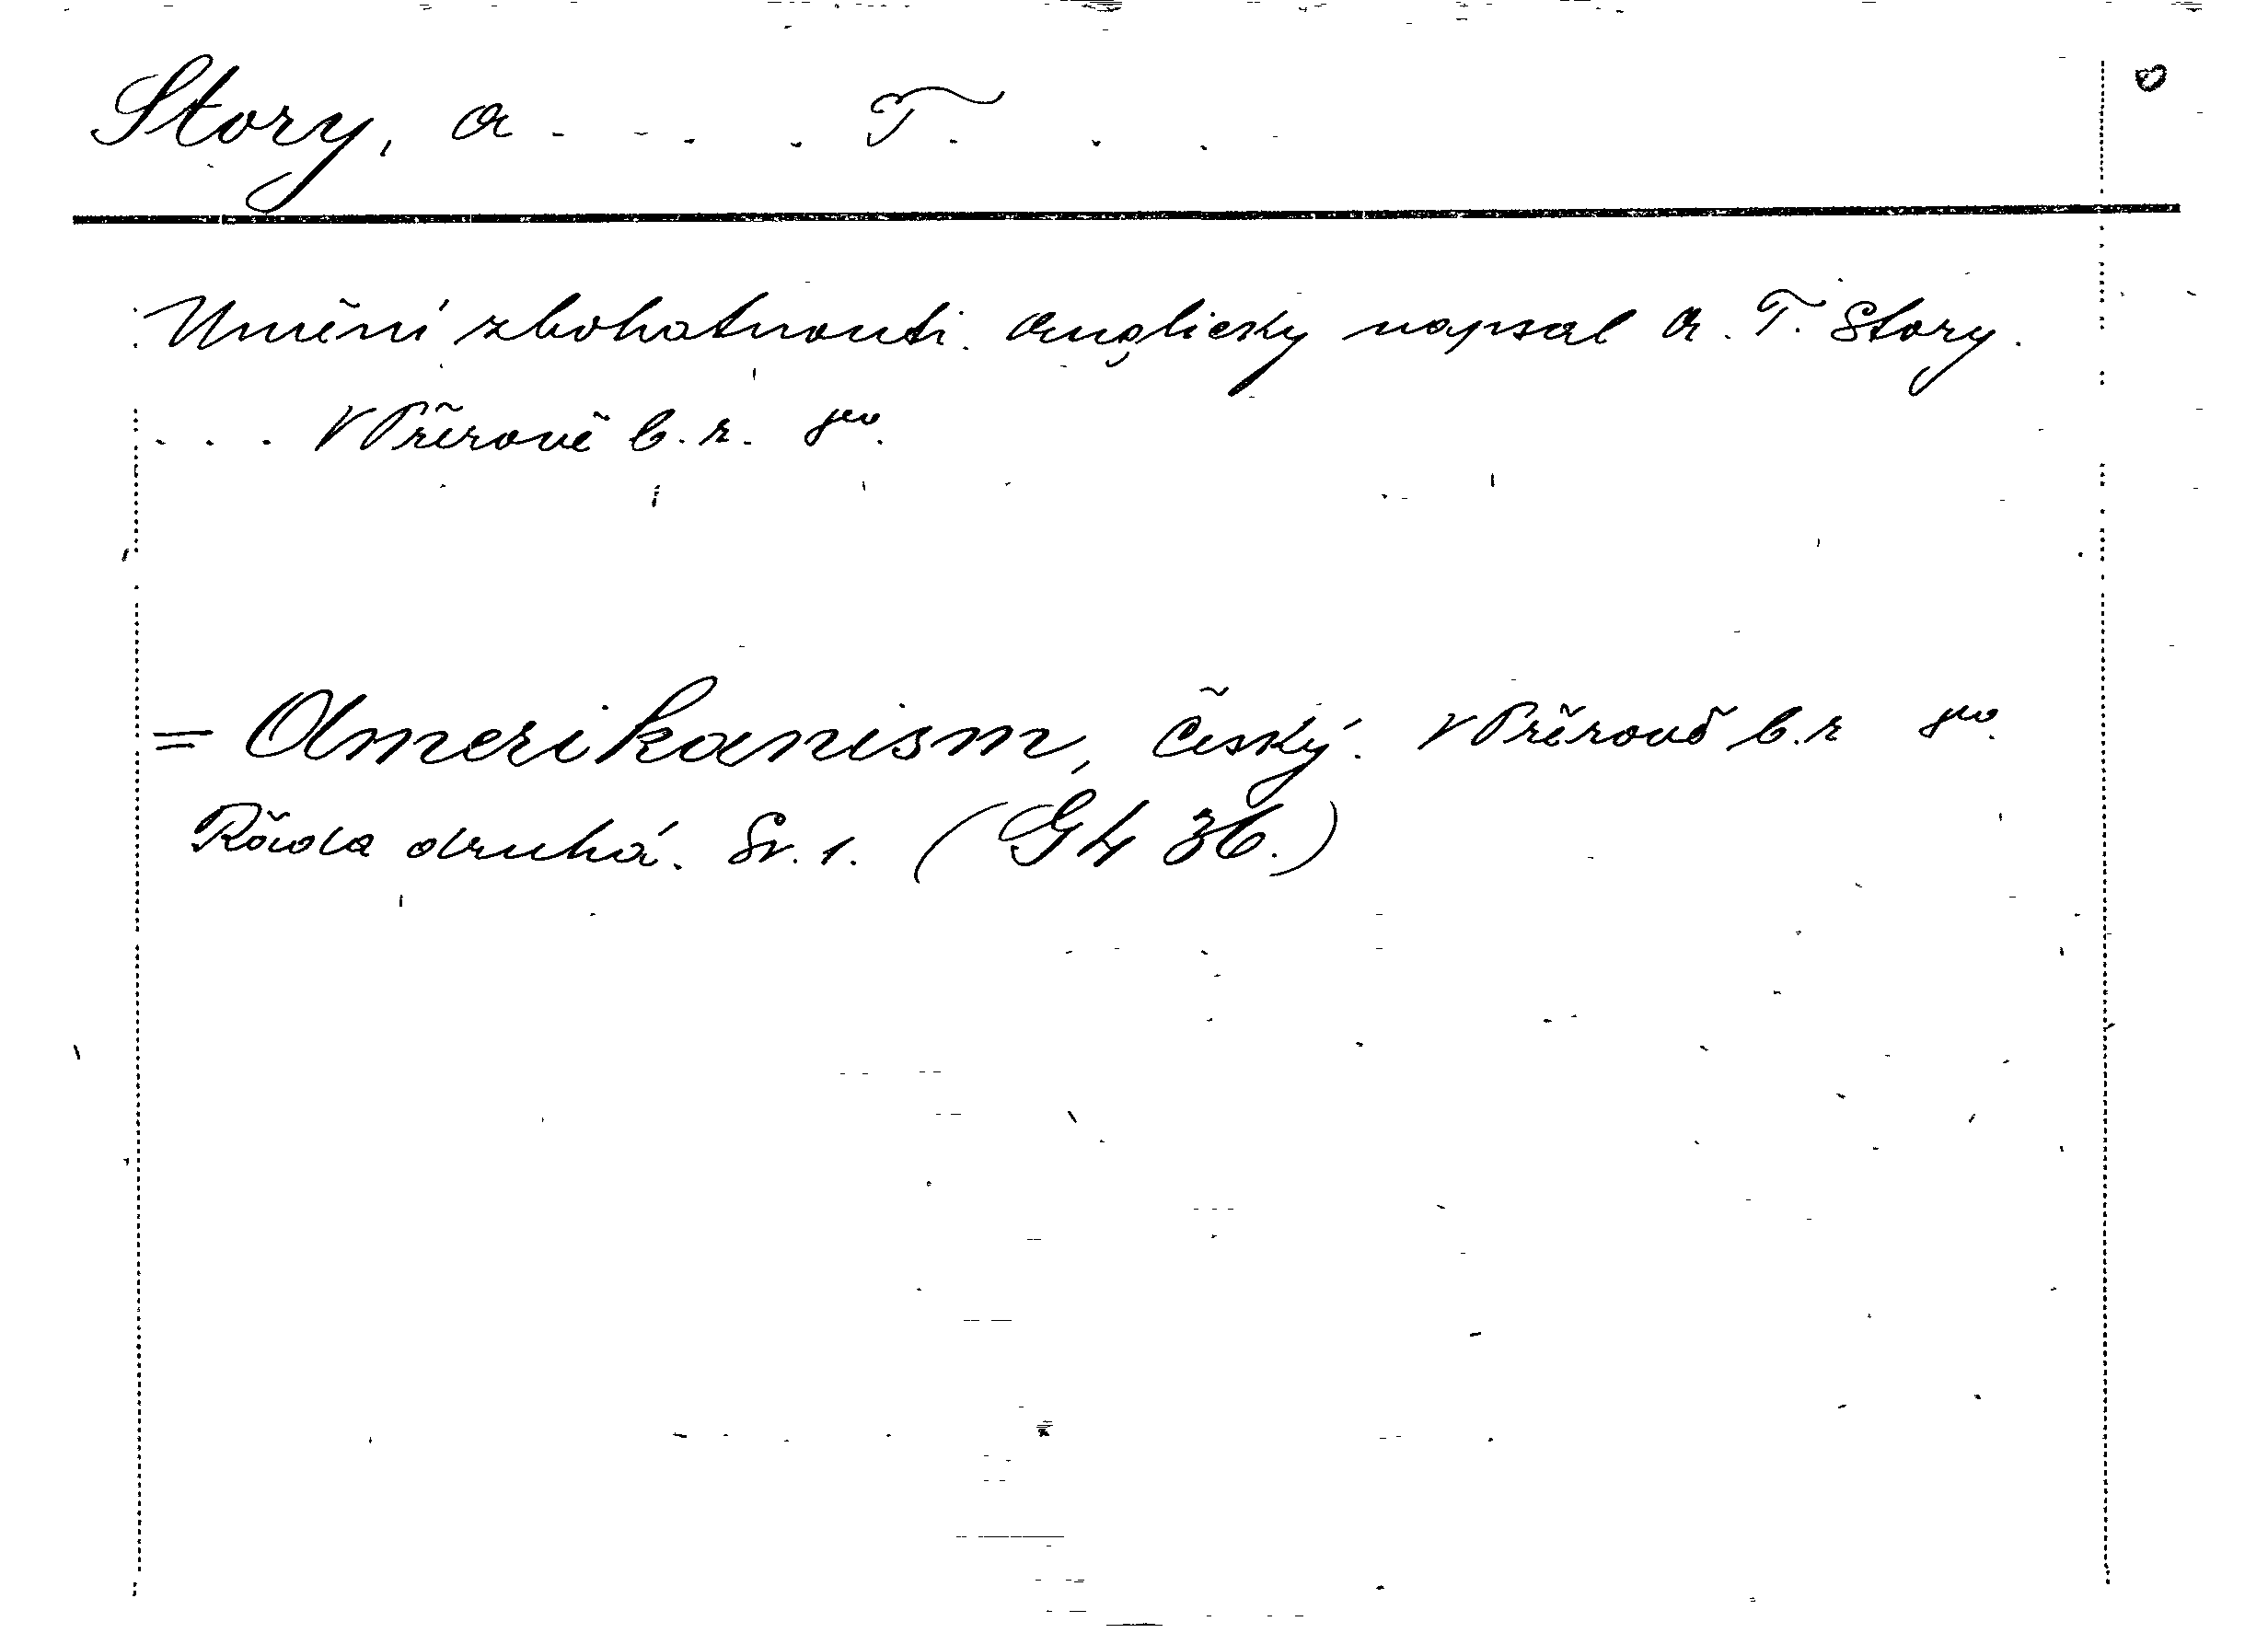 Story, A . . . . T. . .
Umění zbohatnouti. Anglicky napsal A. T. Story.
. . . V Přerově b. r. 8vo.
= Amerikanism, Český. V Přerově b. r 8vo.
Řada druhá. Sv. 1. (G h 36.)